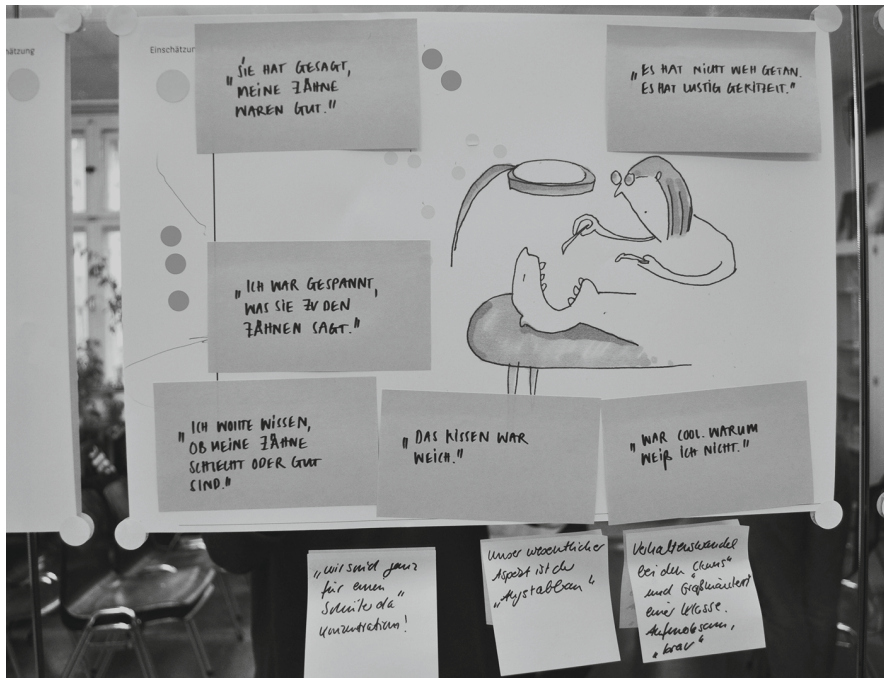 hätzung
Einschätzun
„SIE HAT GESAGT,
MEINE ZÄHNE
WAREN GUT."
„ES HAT NICHT WEH GETAN.
ES HAT LUSTIG GEKITZELT."
„ICH WAR GESPANNT,
WAS SIE ZU DEN
ZÄHNEN SAGT."
„ICH WOLLTE WISSEN,
OB MEINE ZÄHNE
SCHLECHT ODER GUT
SIND."
„DAS KISSEN WAR
WEICH."
„WAR COOL. WARUM
WEIß ICH NICHT."
„wir sind ganz
für einen
Schüler da"
Konzentration!
Unser wesentlicher
Aspekt ist der
„Angstabbau"
Verhaltenswandel
bei den
und
einer Klasse.
Aufmerksam,
„brav"